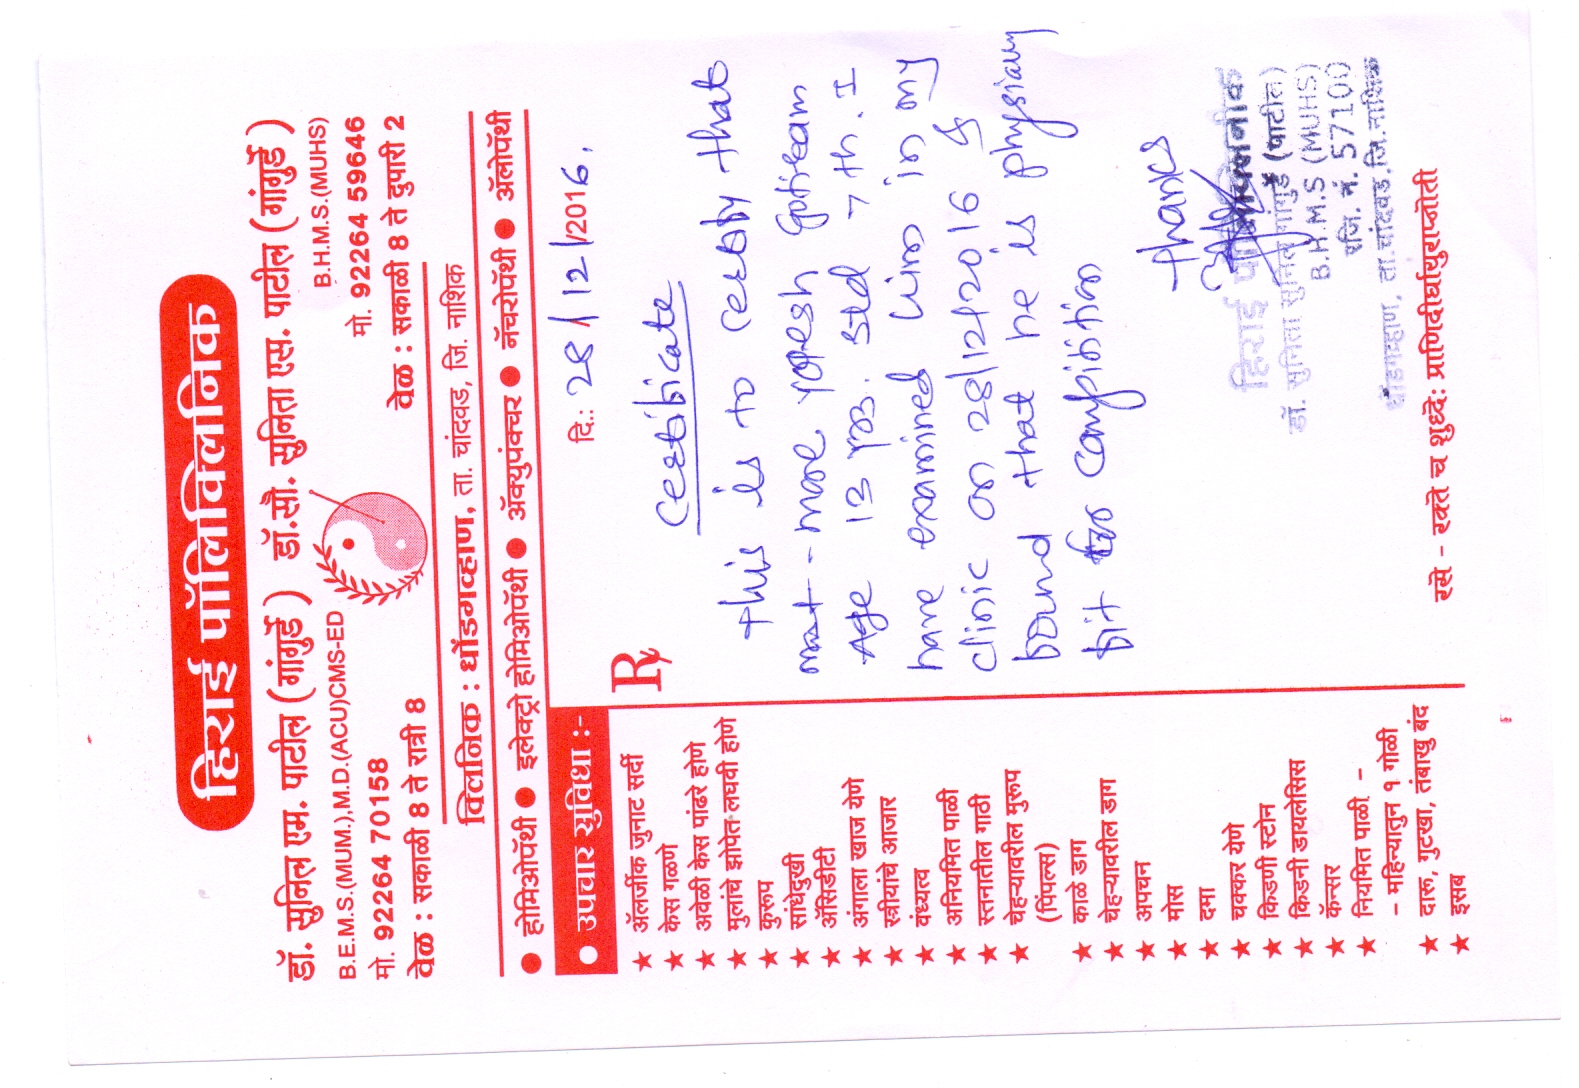 हिराई पॉलिक्लिनिक
डॉ. सुनिल एम. पाटील (गांगुर्डे)
B.E.M.S.(MUM.),M.D.(ACU)CMS-ED
मो. 92264 70158
वेळ : सकाळी 8 ते रात्री 8
डॉ.सौ. सुनिता एस. पाटील (गांगुर्डे)
B.H.M.S.(MUHS)
मो. 92264 59646
वेळ : सकाळी 8 ते दुपारी 2
क्लिनिक : धोंडगव्हाण, ता. चांदवड, जि. नाशिक
● होमिओपॅथी ● इलेक्ट्रो होमिओपॅथी ● ॲक्युपंक्चर ● नॅचरोपॅथी ● ॲलोपॅथी
● उपचार सुविधा :-
★ ॲलर्जीक जुनाट सर्दी
★ केस गळणे
★ अवेळी केस पांढरे होणे
★ मुलांचे झोपेत लघवी होणे
★ कुरूप
★ सांधेदुखी
★ ॲसिडीटी
★ अंगाला खाज येणे
★ स्त्रीयांचे आजार
★ वंध्यत्व
★ अनियमित पाळी
★ स्तनातील गाठी
★ चेहऱ्यावरील मुरूम
(पिंपल्स)
★ काळे डाग
★ चेहऱ्यावरील डाग
★ अपचन
★ मोस
★ दमा
★ चक्कर येणे
★ किडणी स्टोन
★ किडनी डायलेसिस
★ कॅन्सर
★ नियमित पाळी -
- महिन्यातुन १ गोळी
★ दारू, गुटखा, तंबाखु बंद
★ इसब
दि.: 28/12/2016.
Rx
Certificate
This is to certify that
mast - more yogesh gotiram
Age 13 yrs. Std 7th. I
have examined him in my
clinic on 28/12/2016 &
found that he is physicaly
fit for compitition
Thanks
हिराई पॉलिक्लनीक
डॉ. सुनिता सुनिल गांगुर्डे (पाटील)
B.H.M.S (MUHS)
रजि. नं. 57100
धोंडगव्हाण, ता.चांदवड.जि.नाशिक
रसे - रक्ते च शुध्दे: प्राणिदीर्घायुराप्नोती